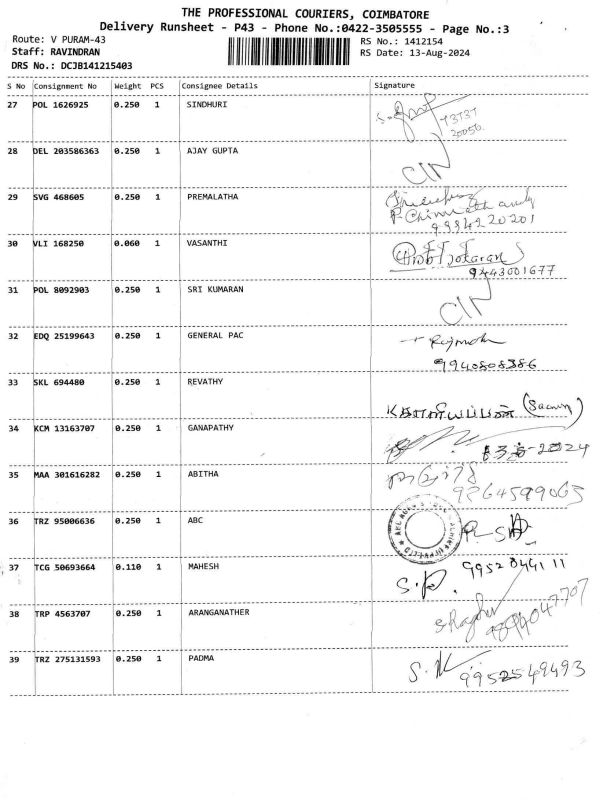 THE PROFESSIONAL COURIERS, COIMBATORE
Delivery Runsheet - P43 - Phone No.:0422-3505555 - Page No.:3
Route: V PURAM-43
RS No.: 1412154
Staff: RAVINDRAN
RS Date: 13-Aug-2024
DRS No.: DCJB141215403
S No Consignment No Weight PCS Consignee Details Signature
27 POL 1626925 0.250 1 SINDHURI
28 DEL 203586363 0.250 1 AJAY GUPTA
CIN
29 SVG 468605 0.250 1 PREMALATHA
9994220201
30 VLI 168250 0.060 1 VASANTHI
9443001677
31 POL 8092903 0.250 1 SRI KUMARAN
CIN
32 EDQ 25199643 0.250 1 GENERAL PAC
9940808386
33 SKL 694480 0.250 1 REVATHY
34 KCM 13163707 0.250 1 GANAPATHY
35 MAA 301616282 0.250 1 ABITHA
9864599063
36 TRZ 95006636 0.250 1 ABC
37 TCG 50693664 0.110 1 MAHESH
38 TRP 4563707 0.250 1 ARANGANATHER
39 TRZ 275131593 0.250 1 PADMA
S.K 9952549493